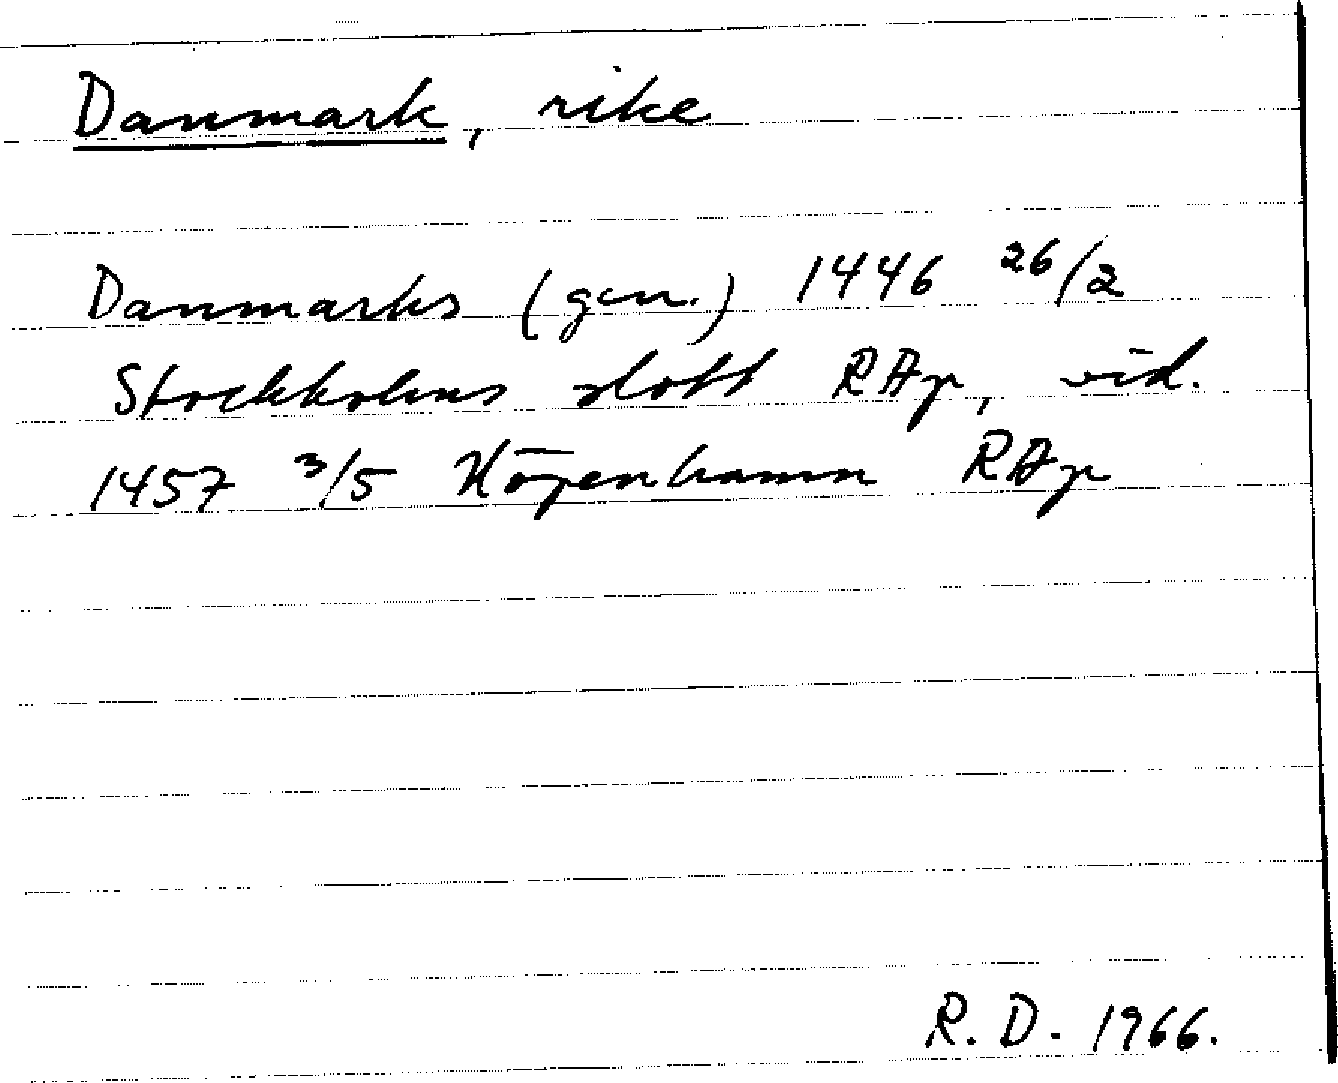 Danmark, rike
Danmarks (gen.) 1446 26/2
Stockholms slott RAp, vid.
1457 3/5 Köpenhamn RAp
R. D. 1966.